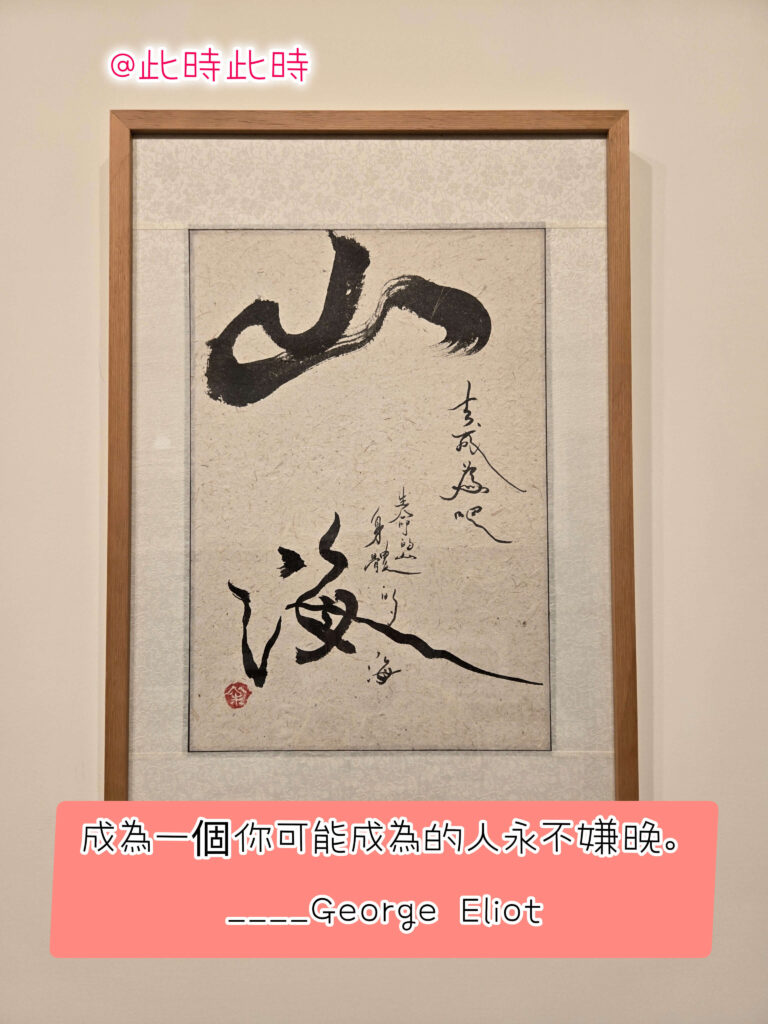 @此時此時
山
海
去成為吧
生命的山
身體的海
成為一個你可能成為的人永不嫌晚。
____George Eliot